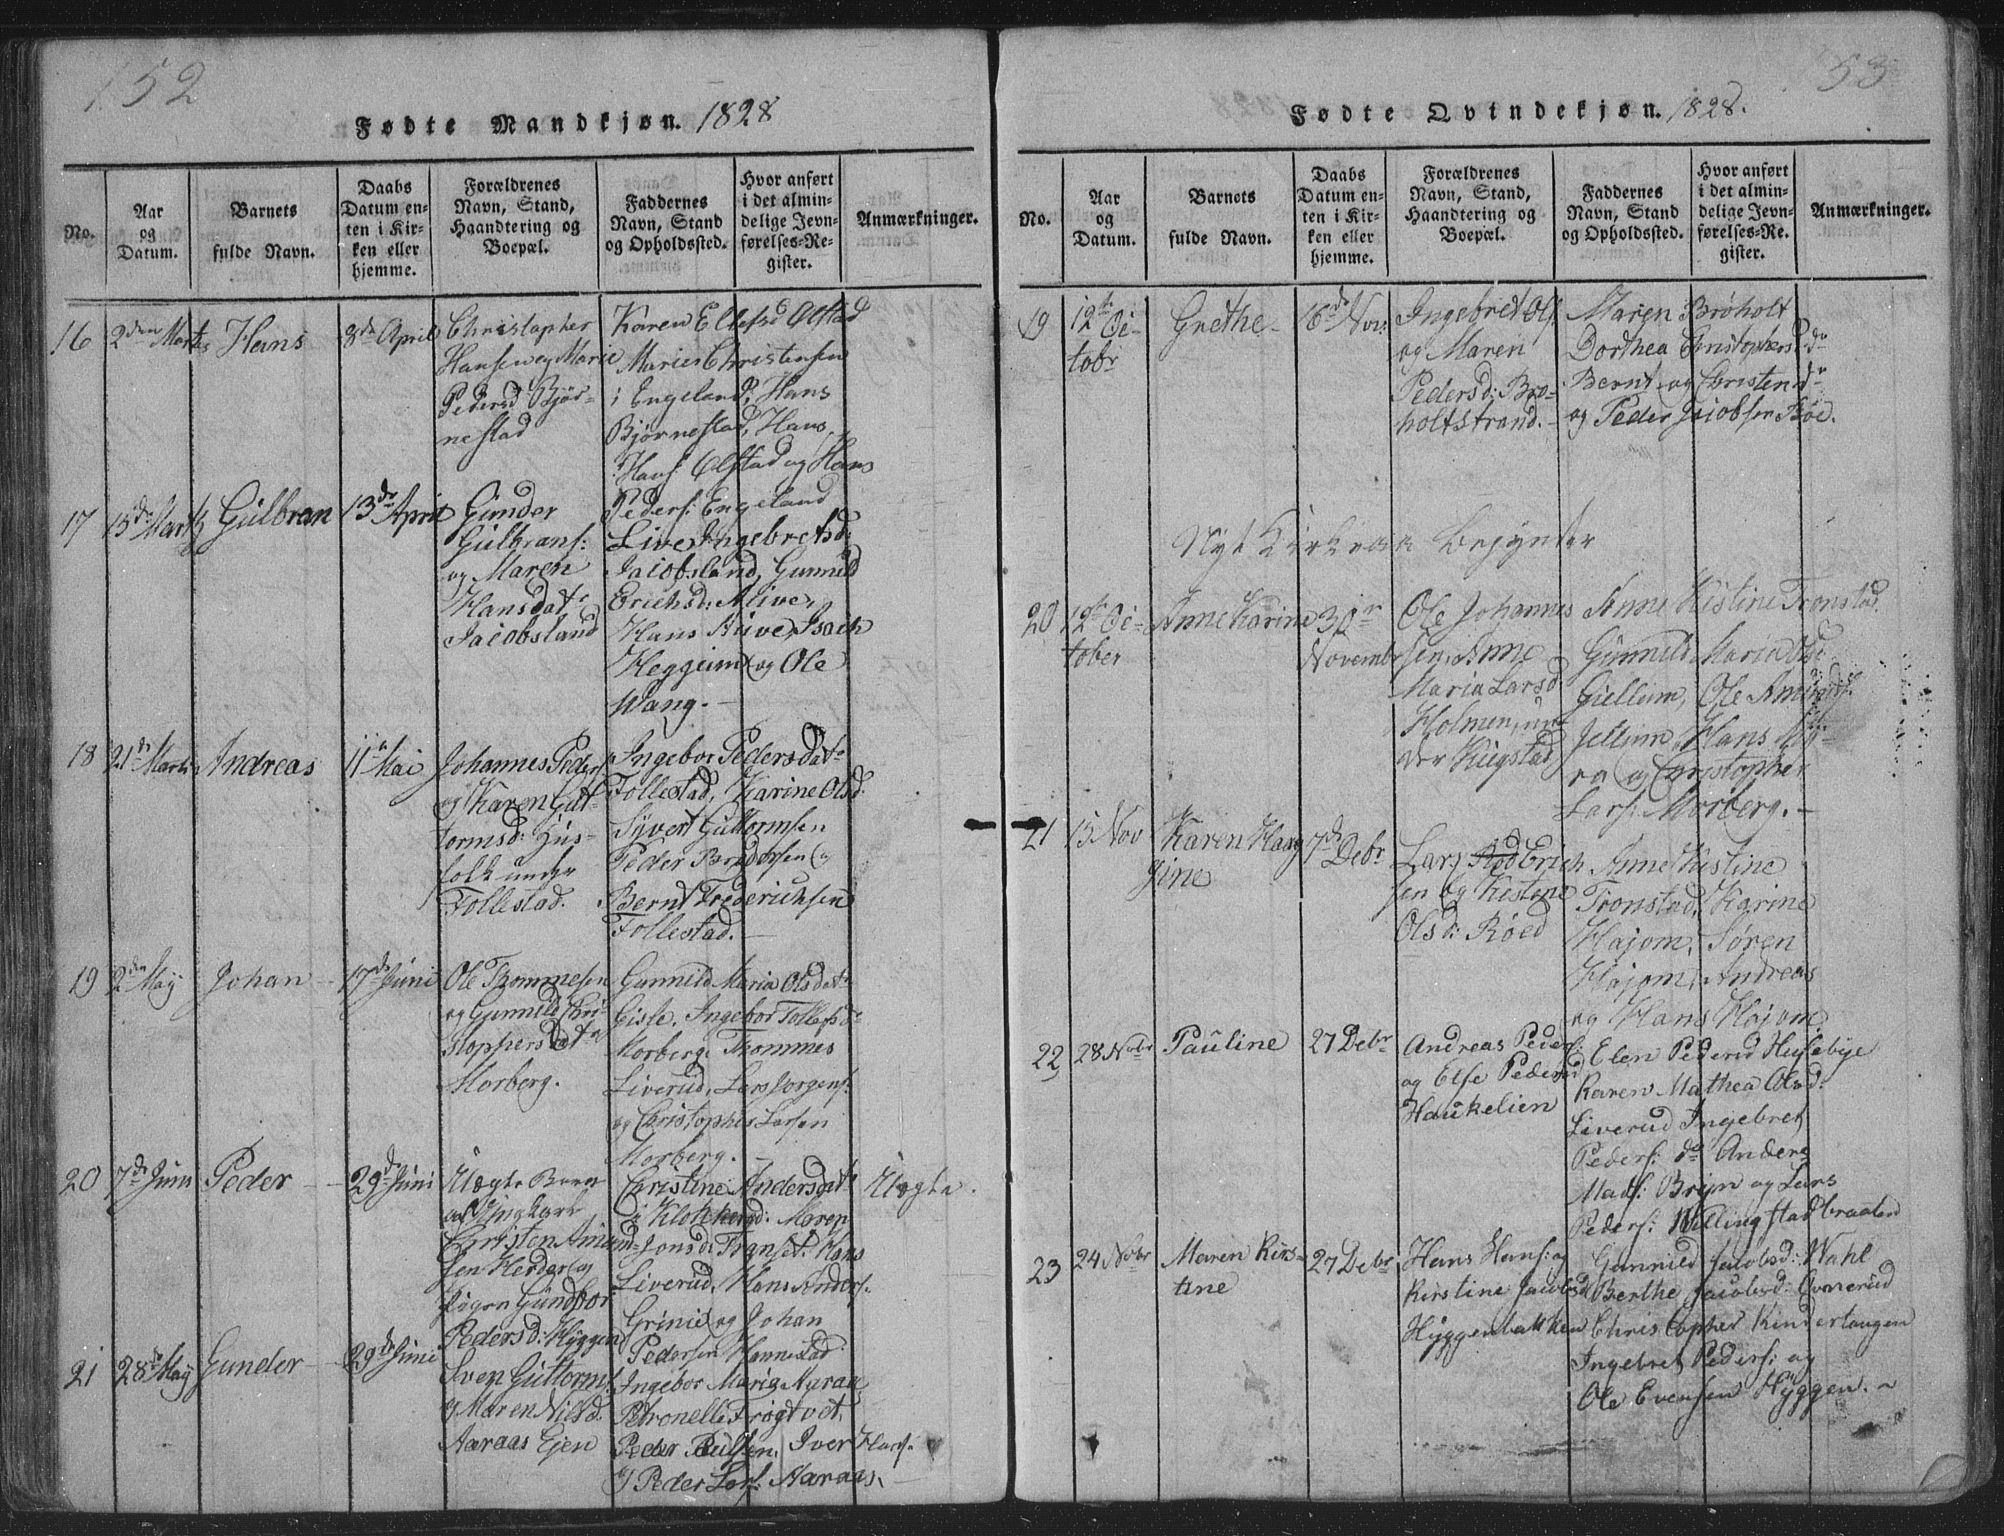 152
Fødte Mandkjøn. 1828
No.
Aar og Datum.
Barnets fulde Navn.
Daabs Datum enten i Kirken eller hjemme.
Forældrenes Navn, Stand, Haandtering og Boepæl.
Faddernes Navn, Stand og Opholdssted.
Hvor anført i det almindelige Jevnførelses-Register.
Anmærkninger.
16
2den Marts
Hans
8de April
Christopher
Pedersd Bjør-
nestad
Karen Ellefsd Olstad
Christensen
i Engeland, Hans
Bjørnestad, Hans
Hans: Olstad og Hans
Peders: Engeland
17
15de Marts
Gulbran
13de April
Gunder
Gulbrans:
og Maren
Hansdatr
Jacobsland
Live Ingebretsd:
Jacobsland, Gunnild
Erichsd:
Hans
Heggum og Ole
Wang.-
18
21de Marts
Andreas
11te Mai
Johannes Peders
og Karen Gut-
tormsd: Hus-
folk under
Follestad.
Ingebor Pedersdatr
Follestad, Karine Olsd.
Syvert Guttormsen
Peder
Bernt Frederichsen
Follestad.-
19
2den May
Johan
17de Juni
Ole Thommesen
og Gunnild Chri-
stophersdatr
Morberg.
Gunnild Maria Olsdatr
Gisle, Ingebor Tollefsdr
Morberg. Thommes
Liverud, Lars Jorgens:
og Christopher Larsen
Morberg.-
20
7de Juni
Peder
29de Juni
Uægte Barn
Christen Amund-
sen
Pigen Gundbor
Pedersd: Hyggen
Christine Andersdatr
Maren
Jonsd:
Liverud, Hans Anders:
og Johan
Pedersen
Uægte.
21
28de May
Gunder
29de Juni
Sven Guttorms:
og Maren Nilsd.
Aaraas Ejen
Ingebor Maria Aaraas
Petronelle Frøgtvet,
Peder Iver Hans:
og Peder Lars: Aaraas.
53
Fødte Qvindekjøn. 1828.
No.
Aar og Datum.
Barnets fulde Navn.
Daabs Datum enten i Kirken eller hjemme.
Forældrenes Navn, Stand, Haandtering og Boepæl.
Faddernes Navn, Stand og Opholdssted.
Hvor anført i det almindelige Jevnførelses-Register.
Anmærkninger.
19
12te Oc-
tobr
Grethe-
16de Nov:
Ingebret Ols:
og Maren
Pedersd: Brø-
holtstrand.-
Maren Brøholt
Dorthea Christophersd do
Bernt og Christen do
og Peder Jacobsen
Nyt Kirkeaar begynter
20
12te Oc-
tober
Anne Karine
30te
Novembr
Ole Johannes
sen, Anne
Maria Larsd
Holmen, un-
der
Anne Kistine Tronstad.
Gunnild Maria
Gjellum, Ole Amunds:
Jellum, Hans
og Christopher
Lars: Morberg.-
21
15 Nov
Karen Hans
gine
7de Debr
Lars Rød Erich
sen og Kistine
Olsd: Røed
Anne Kistine
Tronstad, Karine
Hajom, Søren
Hajom, Andreas
og Hans Hajom
22
28 Nobr
Pauline
27 Debr
Andreas Peders:
og Else Pedersd
Haukelien
Elen Pedersd Husebye
Karen Mathea Olsd:
Liverud Ingebret
Peders: do Anders
Mads: Bryn og Lars
Peders: Wellingstadbraaten
23
24 Nobr
Maren Kirs-
tine
27 Debr
Hans Hans: og
Kirstine Jacobsd
Hyggenbakken
Gunnild Jacobsd: Wahl
Berthe Jacobsd: Ovnerud
Christopher Kindertangen
Ingebret Peders: og
Ole Evensen Hyggen.-